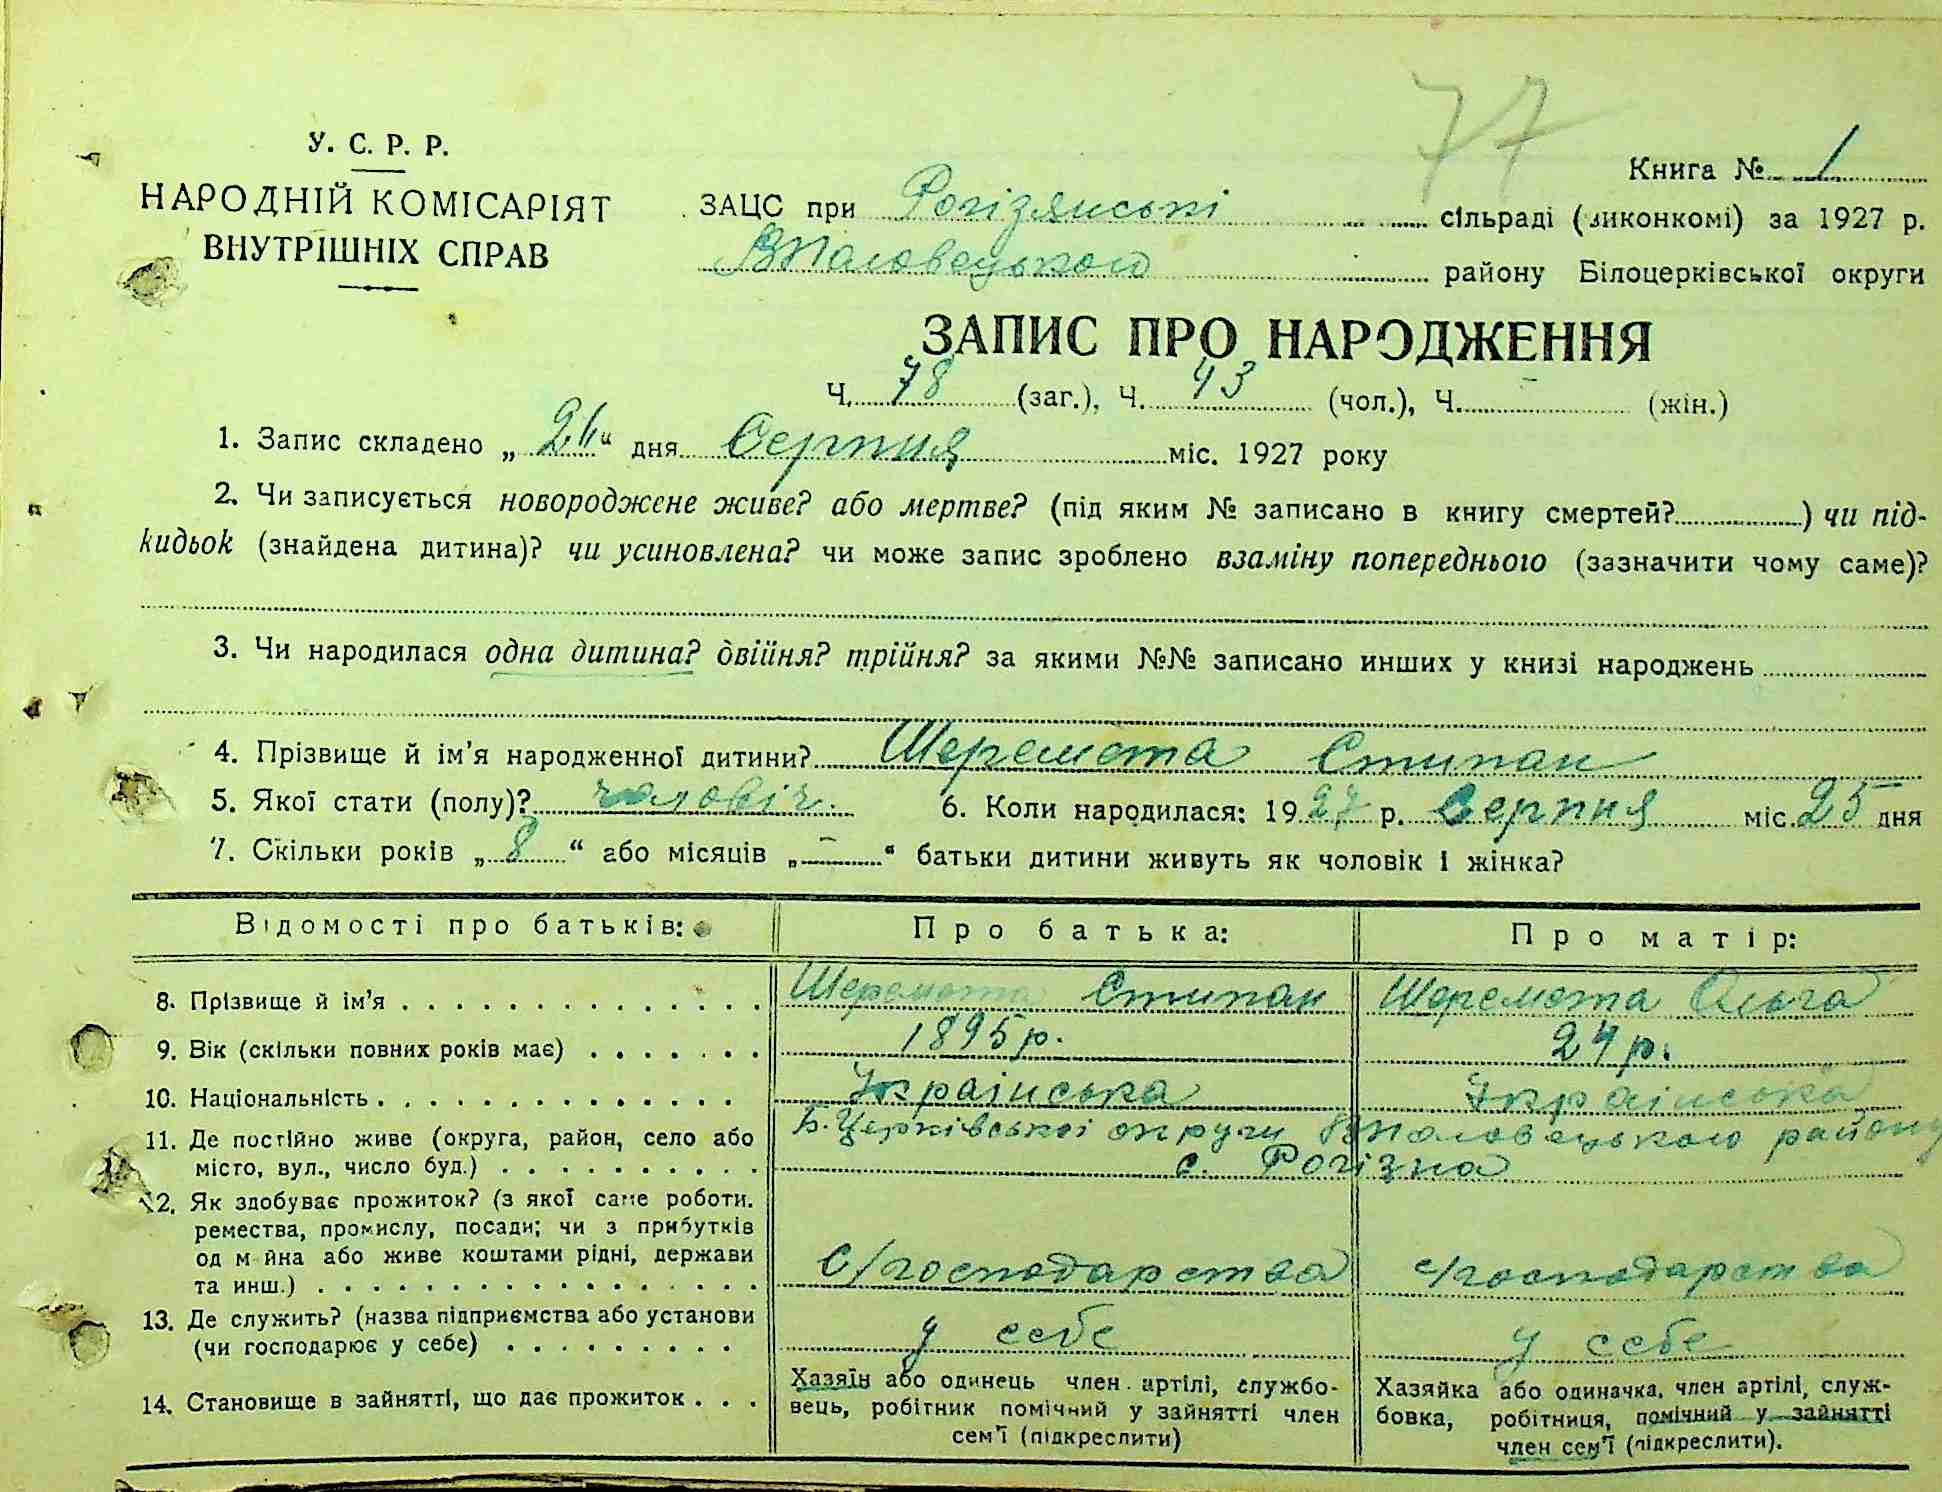 77
У. С. Р. Р.
НАРОДНІЙ КОМІСАРІЯТ
ВНУТРІШНІХ СПРАВ
Книга № 1
ЗАЦС при Рогізянські сільраді (виконкомі) за 1927 р.
району Білоцерківської округи
ЗАПИС ПРО НАРОДЖЕННЯ
Ч. 78 (заг.), Ч. 43 (чол.), Ч. - (жін.)
1. Запис складено „ 26 “ дня Серпня міс. 1927 року
2. Чи записується новороджене живе? або мертве? (під яким № записано в книгу смертей?) чи під-
кидьок (знайдена дитина)? чи усиновлена? чи може запис зроблено взаміну попереднього (зазначити чому саме)?
3. Чи народилася одна дитина? двійня? трійня? за якими №№ записано инших у книзі народжень
4. Прізвище й ім’я народженної дитини? Шеремета Стипан
5. Якої стати (полу)? чоловіч. 6. Коли народилася: 1927 р. Серпня міс. 25 дня
7. Скільки років „ 8 “ або місяців „ - “ батьки дитини живуть як чоловік і жінка?
Відомості про батьків: Про батька: Про матір:
8. Прізвище й ім’я . . . . . . . . . . . . . . . Шеремета Стипан Шеремета Ольга
9. Вік (скільки повних років має) . . . . . . . 1895р. 24 р.
10. Національність . . . . . . . . . . . . . . . Українська Українська
11. Де постійно живе (округа, район, село або
місто, вул., число буд.) . . . . . . . . . . Б. Церківської округи району
с. Рогізна
12. Як здобуває прожиток? (з якої саме роботи.
ремества, промислу, посади; чи з прибутків
од майна або живе коштами рідні, держави
та инш.) . . . . . . . . . . . . . . . . . С/господарства с/господарства
13. Де служить? (назва підприємства або установи
(чи господарює у себе) . . . . . . . . . у себе у себе
14. Становище в зайнятті, що дає прожиток . . .
Хазяїн або одинець член артілі, службо-
вець, робітник помічний у зайнятті член
сем’ї (підкреслити)
Хазяйка або одиначка, член артілі, служ-
бовка, робітниця, помічний у зайнятті
член сем’ї (підкреслити).